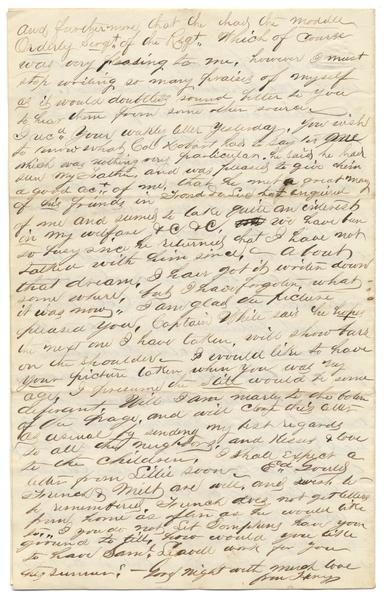 and furthermore that he had the moddle
Orderly Sergt of the Regt. Which of course
was very pleasing to me, however I must
stop writing so many praises of myself
as it would doubtless sound better to you
to hear them from some other source.
I recd your welcome letter yesterday, you wish
to know what Col has to say for
which was nothing very particular. he said he had
seen my Father, and was pleased to give him
a good act of me, that he met a great many
of friends in that enquired
of me and seemes to take quite an interest
in my welfare &C &C, We have been
so busy since he returned that I have not
talked with him since. About
that dream, I have got it wrote down
some where, but I have forgoten what
it was now. I am glad the picture
pleased you, Captain White said he hopes
the next one I have taken, will show bars
on the shoulder. I would like to have
your picture taken when you was my
age, I presume the Still would be some
different. Well I am nearly to the bottom
of the Page, and will close this letter
as usual by sending my best regards
to all the neighbors, and Kisses & love
to the children, I shall expect a
letter from Lillie soon. Ed
French & are well, and wish to
be remembered, French does not get letters
from home as often as he would like
to. If you do not Let Tompkins have your
ground to till, how would you like
to have Saml work for you
this summer? — Good night with much love
from Henry